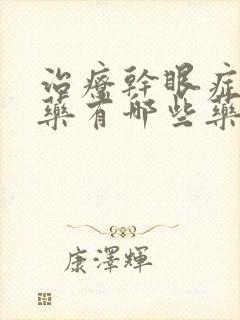 治療幹眼症
藥有哪些藥
康澤輝